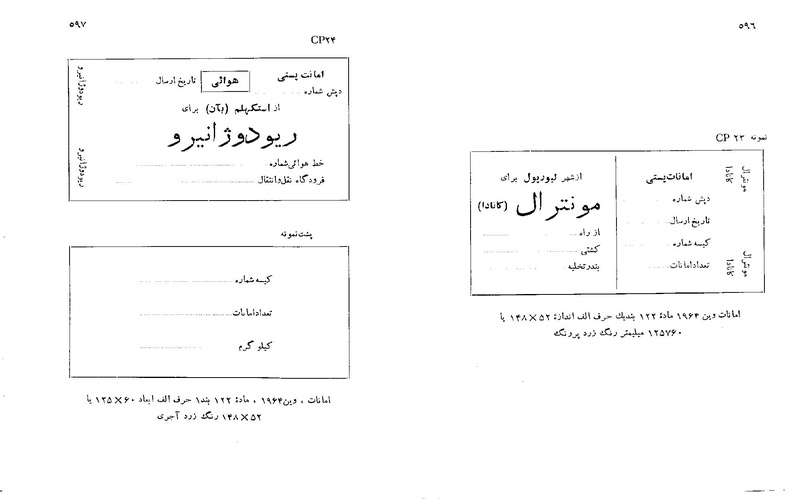 ۵۹۶
نمونه CP ۲۳
مونترال
کانادا
مونترال
کانادا
امانات پستی
دپش شماره
تاریخ ارسال
کیسه شماره
تعداد امانات
از شهر لیورپول برای
مونترال (کانادا)
از راه
کشتی
بندر تخلیه
امانات وین ۱۹۶۴ مادهٔ ۱۲۲ بندیك حرف الف اندازهٔ ۵۲×۱۴۸ یا
۱۲۵×۶۰ میلیمتر رنگ زرد پررنگ
۵۹۷
CP۲۴
ریودوژانیرو
ریودوژانیرو
امانت پستی
هوائی
تاریخ ارسال
دپش شماره
از استکهلم (بآن) برای
ریودوژانیرو
خط هوائی شماره
فرودگاه نقل وانتقال
پشت نمونه
کیسه شماره
تعداد امانات
کیلو گرم
امانات ، وین ۱۹۶۴ ، مادهٔ ۱۲۲ بند۱ حرف الف ابعاد ۶۰×۱۲۵ یا
۵۲×۱۴۸ رنگ زرد آجری